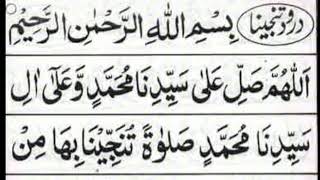 درود تنجینا بِسْمِ اللهِ الرَّحْمٰنِ الرَّحِیْمِ
اَللّٰهُمَّ صَلِّ عَلٰی سَیِّدِنَا مُحَمَّدٍ وَّعَلٰۤی اٰلِ
سَیِّدِنَا مُحَمَّدٍ صَلٰوةً تُنَجِّیْنَا بِهَا مِنْ